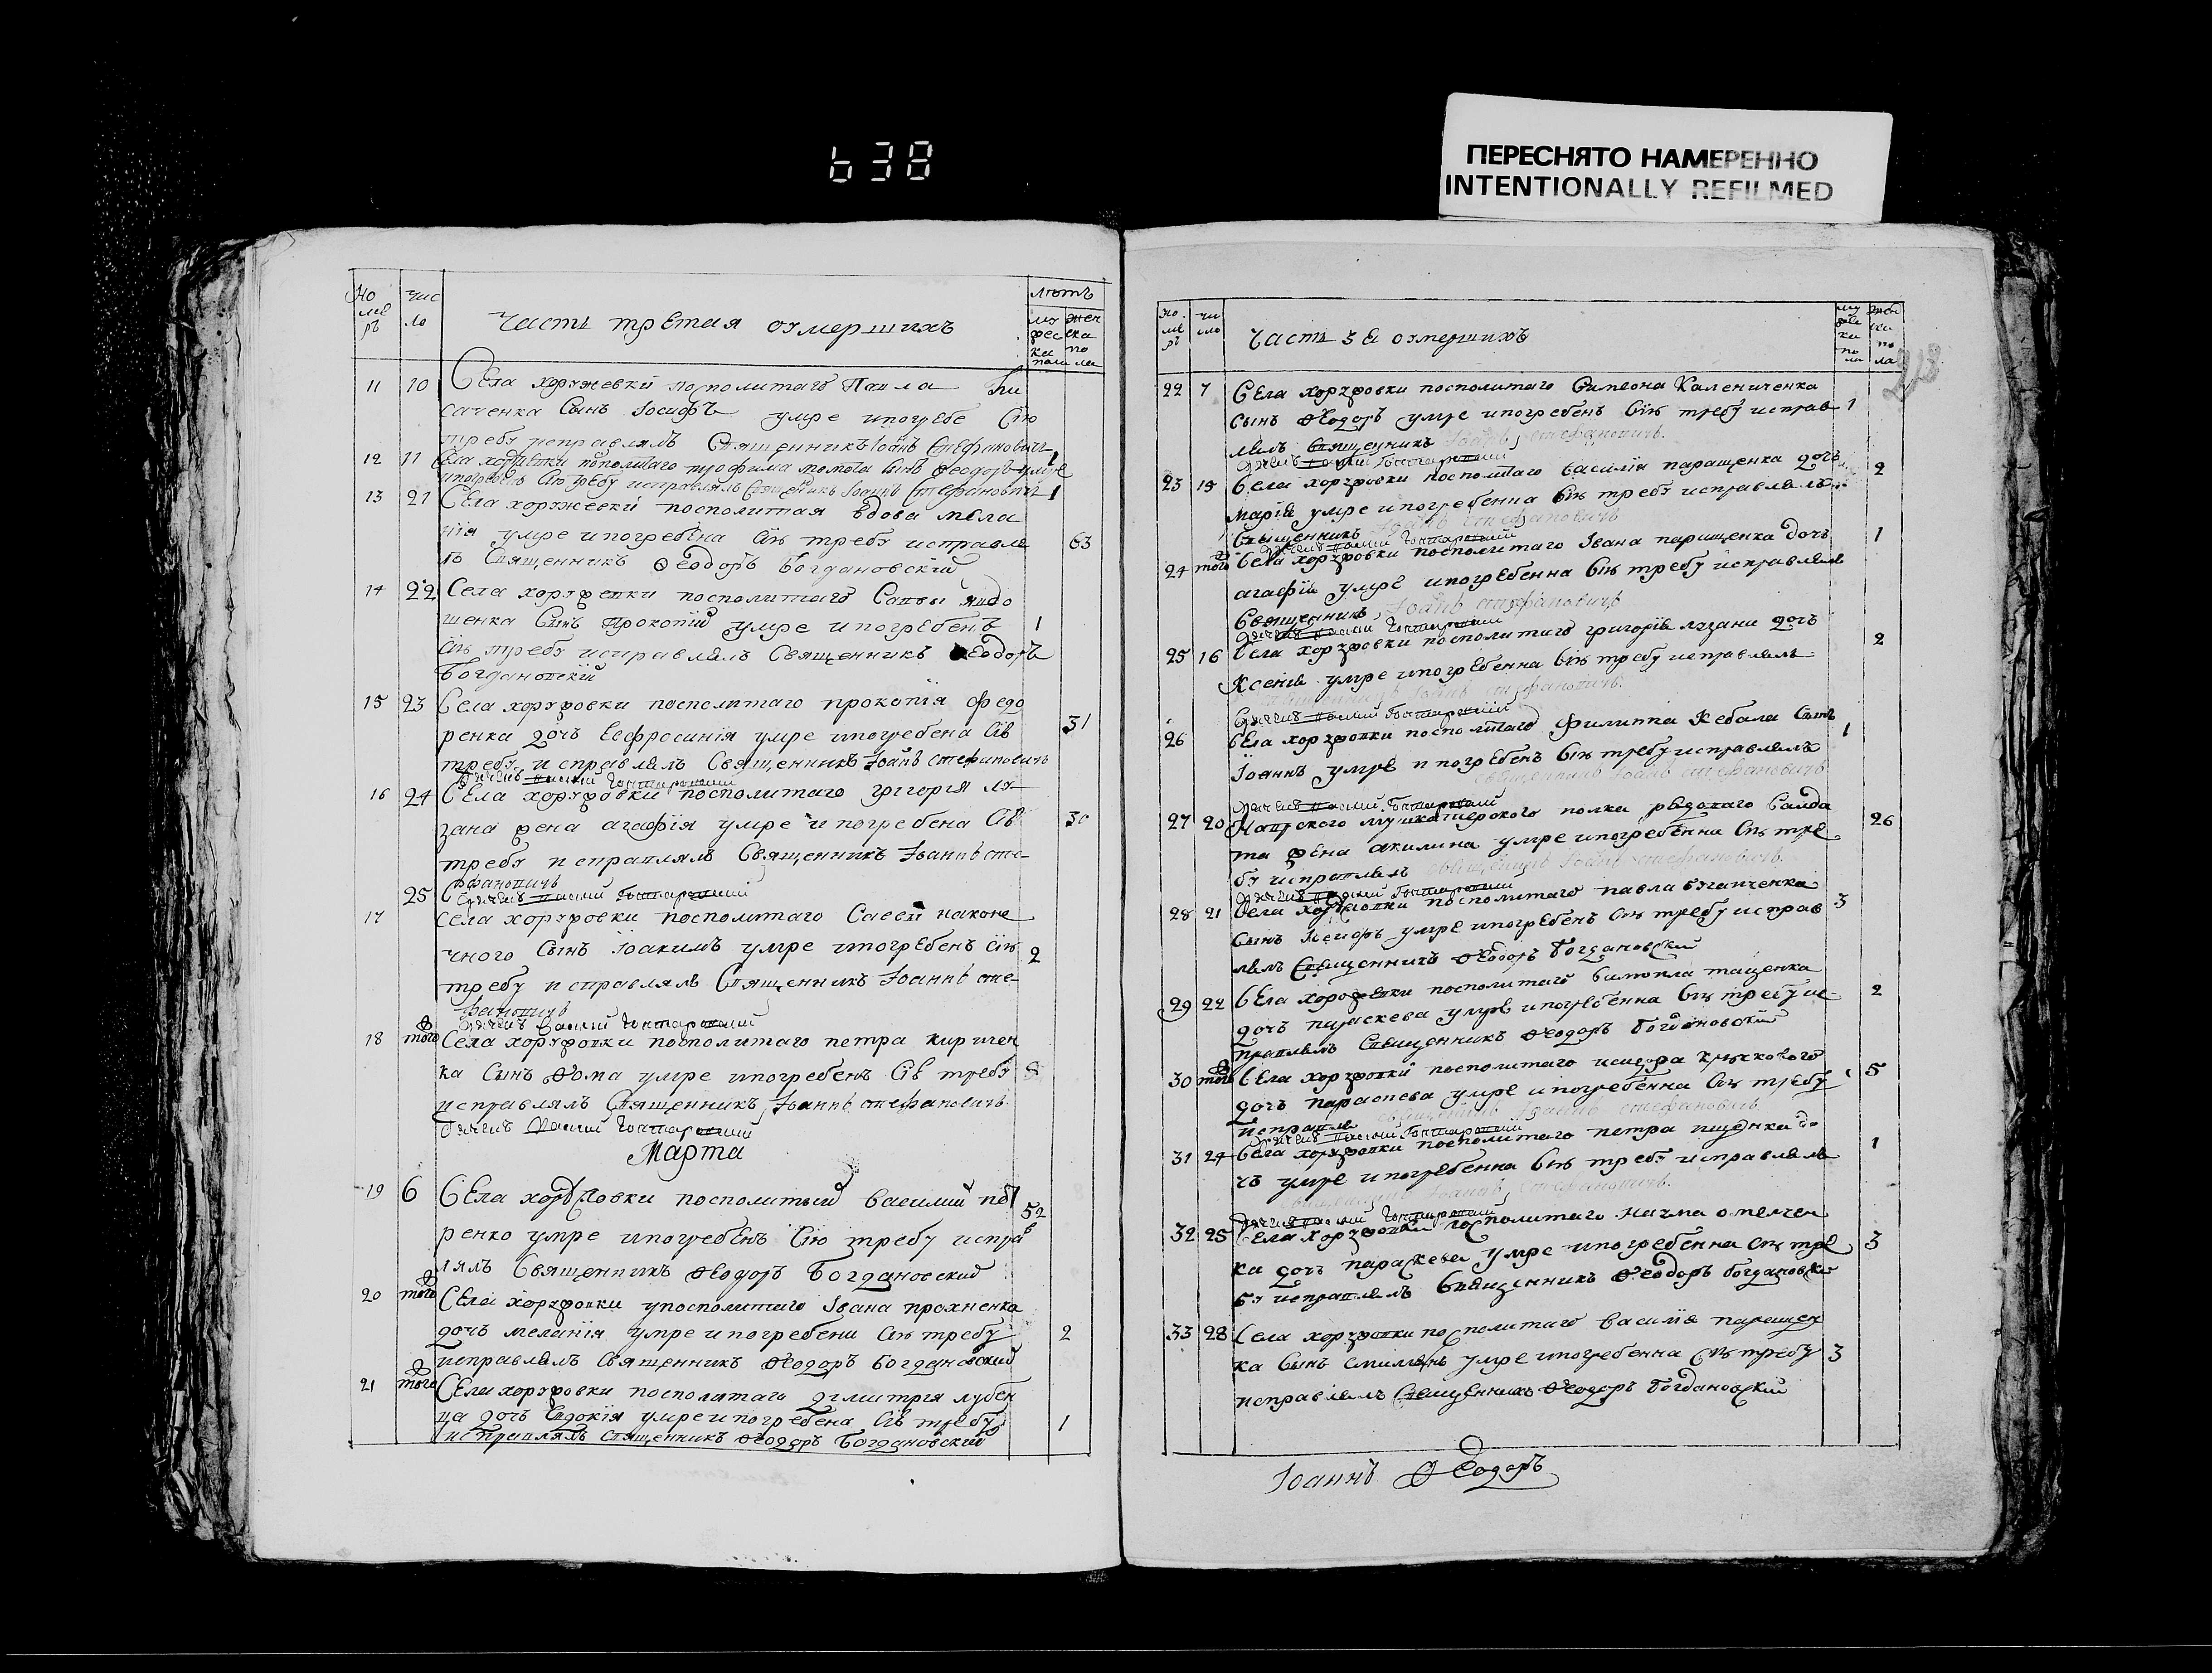 638
ПЕРЕСНЯТО НАМЕРЕННО
INTENTIONALLY REFILMED
Но мѣ ръ
чис ло
Часть третая оумершихъ
лѣтъ
муж еска пола
жен ска по ла
11 10 Села хоружевки посполитаго Павла
саченка Сынъ Іосифъ умре ипогребе Сію
требу исправлялъ Священникъ Іоаннъ Стефановичъ 1
12 11 Села хоружевки посполитаго трофима момота Сынъ Феодоръ умре
ипогребенъ Сію требу исправлялъ Священникъ Іоаннъ Стефановичъ 1
13 21 Села хоружевки посполитая вдова мела
нія умре ипогребена Сію требу исправля 63
лъ Священникъ Феодоръ Богдановскій
14 22 Села хоружевки посполитаго Саввы
шенка Сынъ Прокопій умре ипогребенъ 1
Сію требу исправлялъ Священникъ Феодоръ
Богдановскій
15 23 Села хоружовки посполитаго прокопія федо
ренка дочъ Еефросинія умре ипогребена Сію 31
требу исправлялъ Священникъ Іоаннъ стефановичъ
16 24 Села хоружовки посполитаго григорія ля
зана жена агафія умре ипогребена Сію 30
требу исправлялъ Священникъ Іоаннъ сте-
фановичъ
25
17 Села хоружовки посполитаго Савви наконе
чного Сынъ Іоакимъ умре ипогребенъ Сію 2
требу исправлялъ Священникъ Іоаннъ сте-
фановичъ
18 того Села хоружовки посполитаго петра киричен
ка Сынъ Фома умре ипогребенъ Сію требу 8
исправлялъ Священникъ Іоаннъ стефановичъ
Марта
19 6 Села хоружовки посполитый василий
ренко умре ипогребенъ Сію требу исправ 52
лялъ Священникъ Феодоръ Богдановский
20 того Села хоружовки упосполитаго Івана прохненка
дочъ меланія умре ипогребена Сію требу 2
исправлялъ Священникъ Феодоръ Богдановский
21 того Села хоружовки посполитаго димитрія лубен
ца дочъ Евдокія умре ипогребена Сію требу 1
исправлялъ Священникъ Феодоръ Богдановский
но. мѣ ръ
чи сло
Часть 3 я оумершихъ
муже ска по ла
жен ска по ла
22 7 Села хоружовки посполитаго Симеона Калениченка
сынъ Феодоръ умре ипогребенъ Сію требу исправ 1
лялъ Священникъ Іоаннъ стефановичъ.
23 15 Села хоружовки посполитаго василія паращенка дочъ 2
марія умре ипогребенна Сію требу исправлялъ
Священникъ Іоаннъ стефановичъ
24 того Села хоружовки посполитаго Івана паращенка дочъ 1
агафія умре ипогребенна Сію требу исправлялъ
Священникъ Іоаннъ стефановичъ
25 16 Села хоружовки посполитаго григорія лязани дочъ 2
Ксенія умре ипогребенна Сію требу исправлялъ
Священникъ Іоаннъ стефановичъ.
26 Села хоружовки посполитаго филиппа Кебала Сынъ 1
Іоаннъ умре ипогребенъ Сію требу исправлялъ
священникъ Іоаннъ стефановичъ
27 20 мушкатерского полка рядоваго Салда 26
та жена акилина умре ипогребенна Сію тре
бу исправлялъ священникъ Іоаннъ стефановичъ.
28 21 Села хоружовки посполитаго павла 3
Сынъ Іосифъ умре ипогребенъ Сію требу исправ
лялъ Священникъ Феодоръ Богдановский
29 22 Села хоружовки посполитаго тащенка 2
дочъ параскева умре ипогребенна Сію требу ис
правлялъ Священникъ Феодоръ Богдановский
30 того Села хоружовки посполитаго исидора 5
дочъ параскева умре ипогребенна Сію требу
исправля священникъ Іоаннъ стефановичъ
31 24 Села хоружовки посполитаго петра ищенка до 1
чъ умре ипогребенна Сію требу исправлялъ
священникъ Іоаннъ стефановичъ.
32 25 Села хоружовки посполитаго омелчен 3
ка дочъ параскева умре ипогребенна Сію тре
бу исправлялъ Священникъ Феодоръ Богдановский
33 28 Села хоружовки посполитаго василія паращен
ка Сынъ умре ипогребенна Сію требу 3
исправлялъ Священникъ Феодоръ Богдановский
Іоаннъ Феодоръ